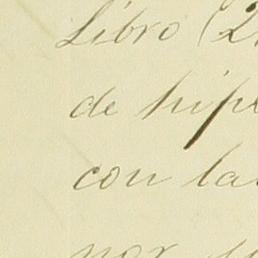 Libro (2
de hipo
con la
por